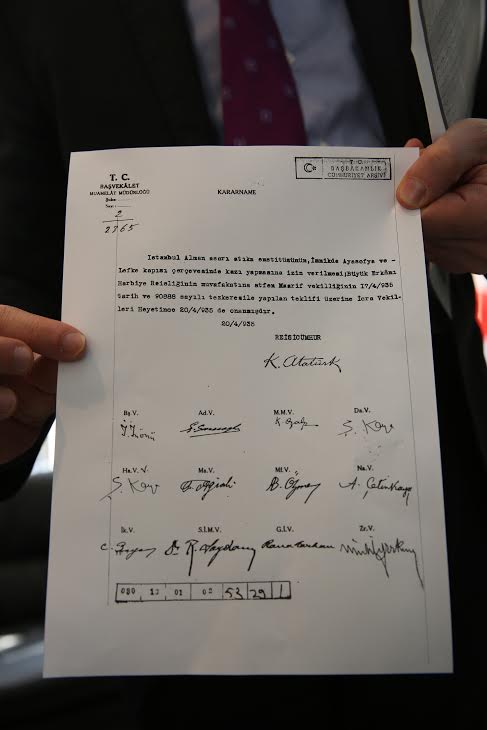 T. C.
BAŞVEKÂLET
MUAMELÂT MÜDÜRLÜĞÜ
Şube
Sayı
2
2365
KARARNAME
T. C.
BAŞBAKANLIK
CUMHURİYET ARŞİVİ
İstanbul Alman asarı atika enstitüsünün, İznikde Ayasofya ve -
Lefke kapısı çerçevesinde kazı yapmasına izin verilmesi; Büyük Erkânı
Harbiye Reisliğinin muvafakatına atfen Maarif vekilliğinin 17/4/935
tarih ve 90888 sayılı tezkeresile yapılan teklifi üzerine İcra Vekil-
leri Heyetince 20/4/935 de onanmışdır.
20/4/935
REİSİCÜMHUR
K. Atatürk
Bş.V. Ad.V. M.M.V. Da.V.
İ. İnönü Ş. Kaya
Ha.V. V. Ma.V. Mf.V. Na.V.
Ş. Kaya A. Çetinkaya
İk.V. S.İ.M.V. G.İ.V. Zr.V.
Dr. R. Saydam Rana Tarhan
030 10 01 02 53 29 1